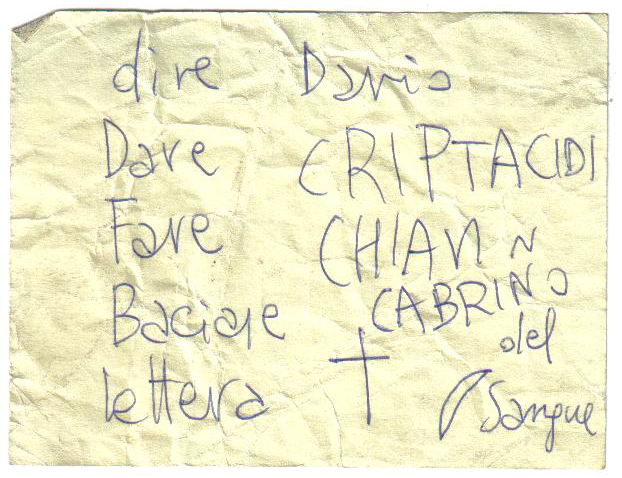 dire Dario
Dare CRIPTACIDI
Fare CHIAVI N
Baciare CABRINO
del
lettera
Sangue